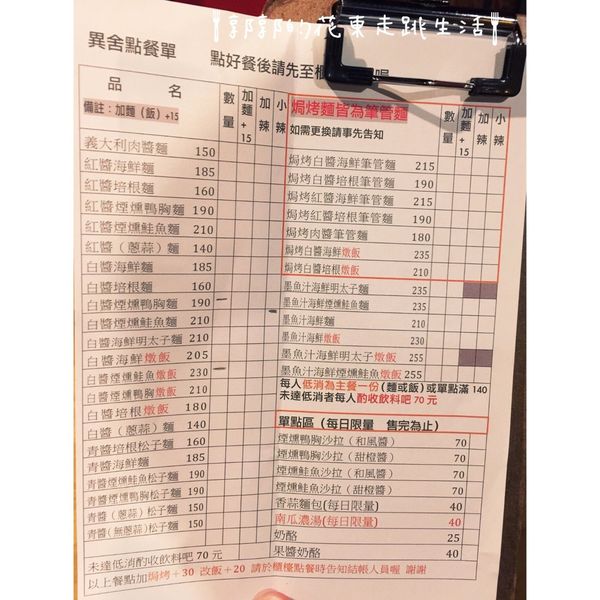 郭郭的花東走跳生活
異舍點餐單
點好餐後請先至櫃
品 名
數量
加麵+15
加辣
小辣
備註：加麵（飯）+15
義大利肉醬麵 150
紅醬海鮮麵 185
紅醬培根麵 160
紅醬煙燻鴨胸麵 190
紅醬煙燻鮭魚麵 210
紅醬（蔥蒜）麵 140
白醬海鮮麵 185
白醬培根麵 160
白醬煙燻鴨胸麵 190
白醬煙燻鮭魚麵 210
白醬海鮮明太子麵 210
白醬海鮮燉飯 205
白醬煙燻鮭魚燉飯 230
白醬煙燻鴨胸燉飯 210
白醬培根燉飯 180
白醬（蔥蒜）麵 140
青醬培根松子麵 160
青醬海鮮麵 185
青醬煙燻鮭魚松子麵 190
青醬煙燻鴨胸松子麵 190
青醬（蔥蒜）松子麵 150
青醬（無蔥蒜）松子麵 150
未達低消酌收飲料吧 70 元
以上餐點加焗烤+30 改飯+20 請於櫃檯點餐時告知結帳人員喔 謝謝
焗烤麵皆為筆管麵
如需更換請事先告知
數量
加麵+15
加辣
小辣
焗烤白醬海鮮筆管麵 215
焗烤白醬培根筆管麵 190
焗烤紅醬海鮮筆管麵 215
焗烤紅醬培根筆管麵 190
焗烤肉醬筆管麵 180
焗烤白醬海鮮燉飯 235
焗烤白醬培根燉飯 210
墨魚汁海鮮明太子麵 235
墨魚汁海鮮煙燻鮭魚麵 235
墨魚汁海鮮麵 210
墨魚汁海鮮燉飯 230
墨魚汁海鮮明太子燉飯 255
墨魚汁海鮮煙燻鮭魚燉飯 255
每人低消為主餐一份(麵或飯)或單點滿 140
未達低消者每人酌收飲料吧 70 元
單點區（每日限量 售完為止）
煙燻鴨胸沙拉（和風醬） 70
煙燻鴨胸沙拉（甜橙醬） 70
煙燻鮭魚沙拉（和風醬） 70
煙燻鮭魚沙拉（甜橙醬） 70
香蒜麵包(每日限量) 40
南瓜濃湯(每日限量) 40
奶酪 25
果醬奶酪 40